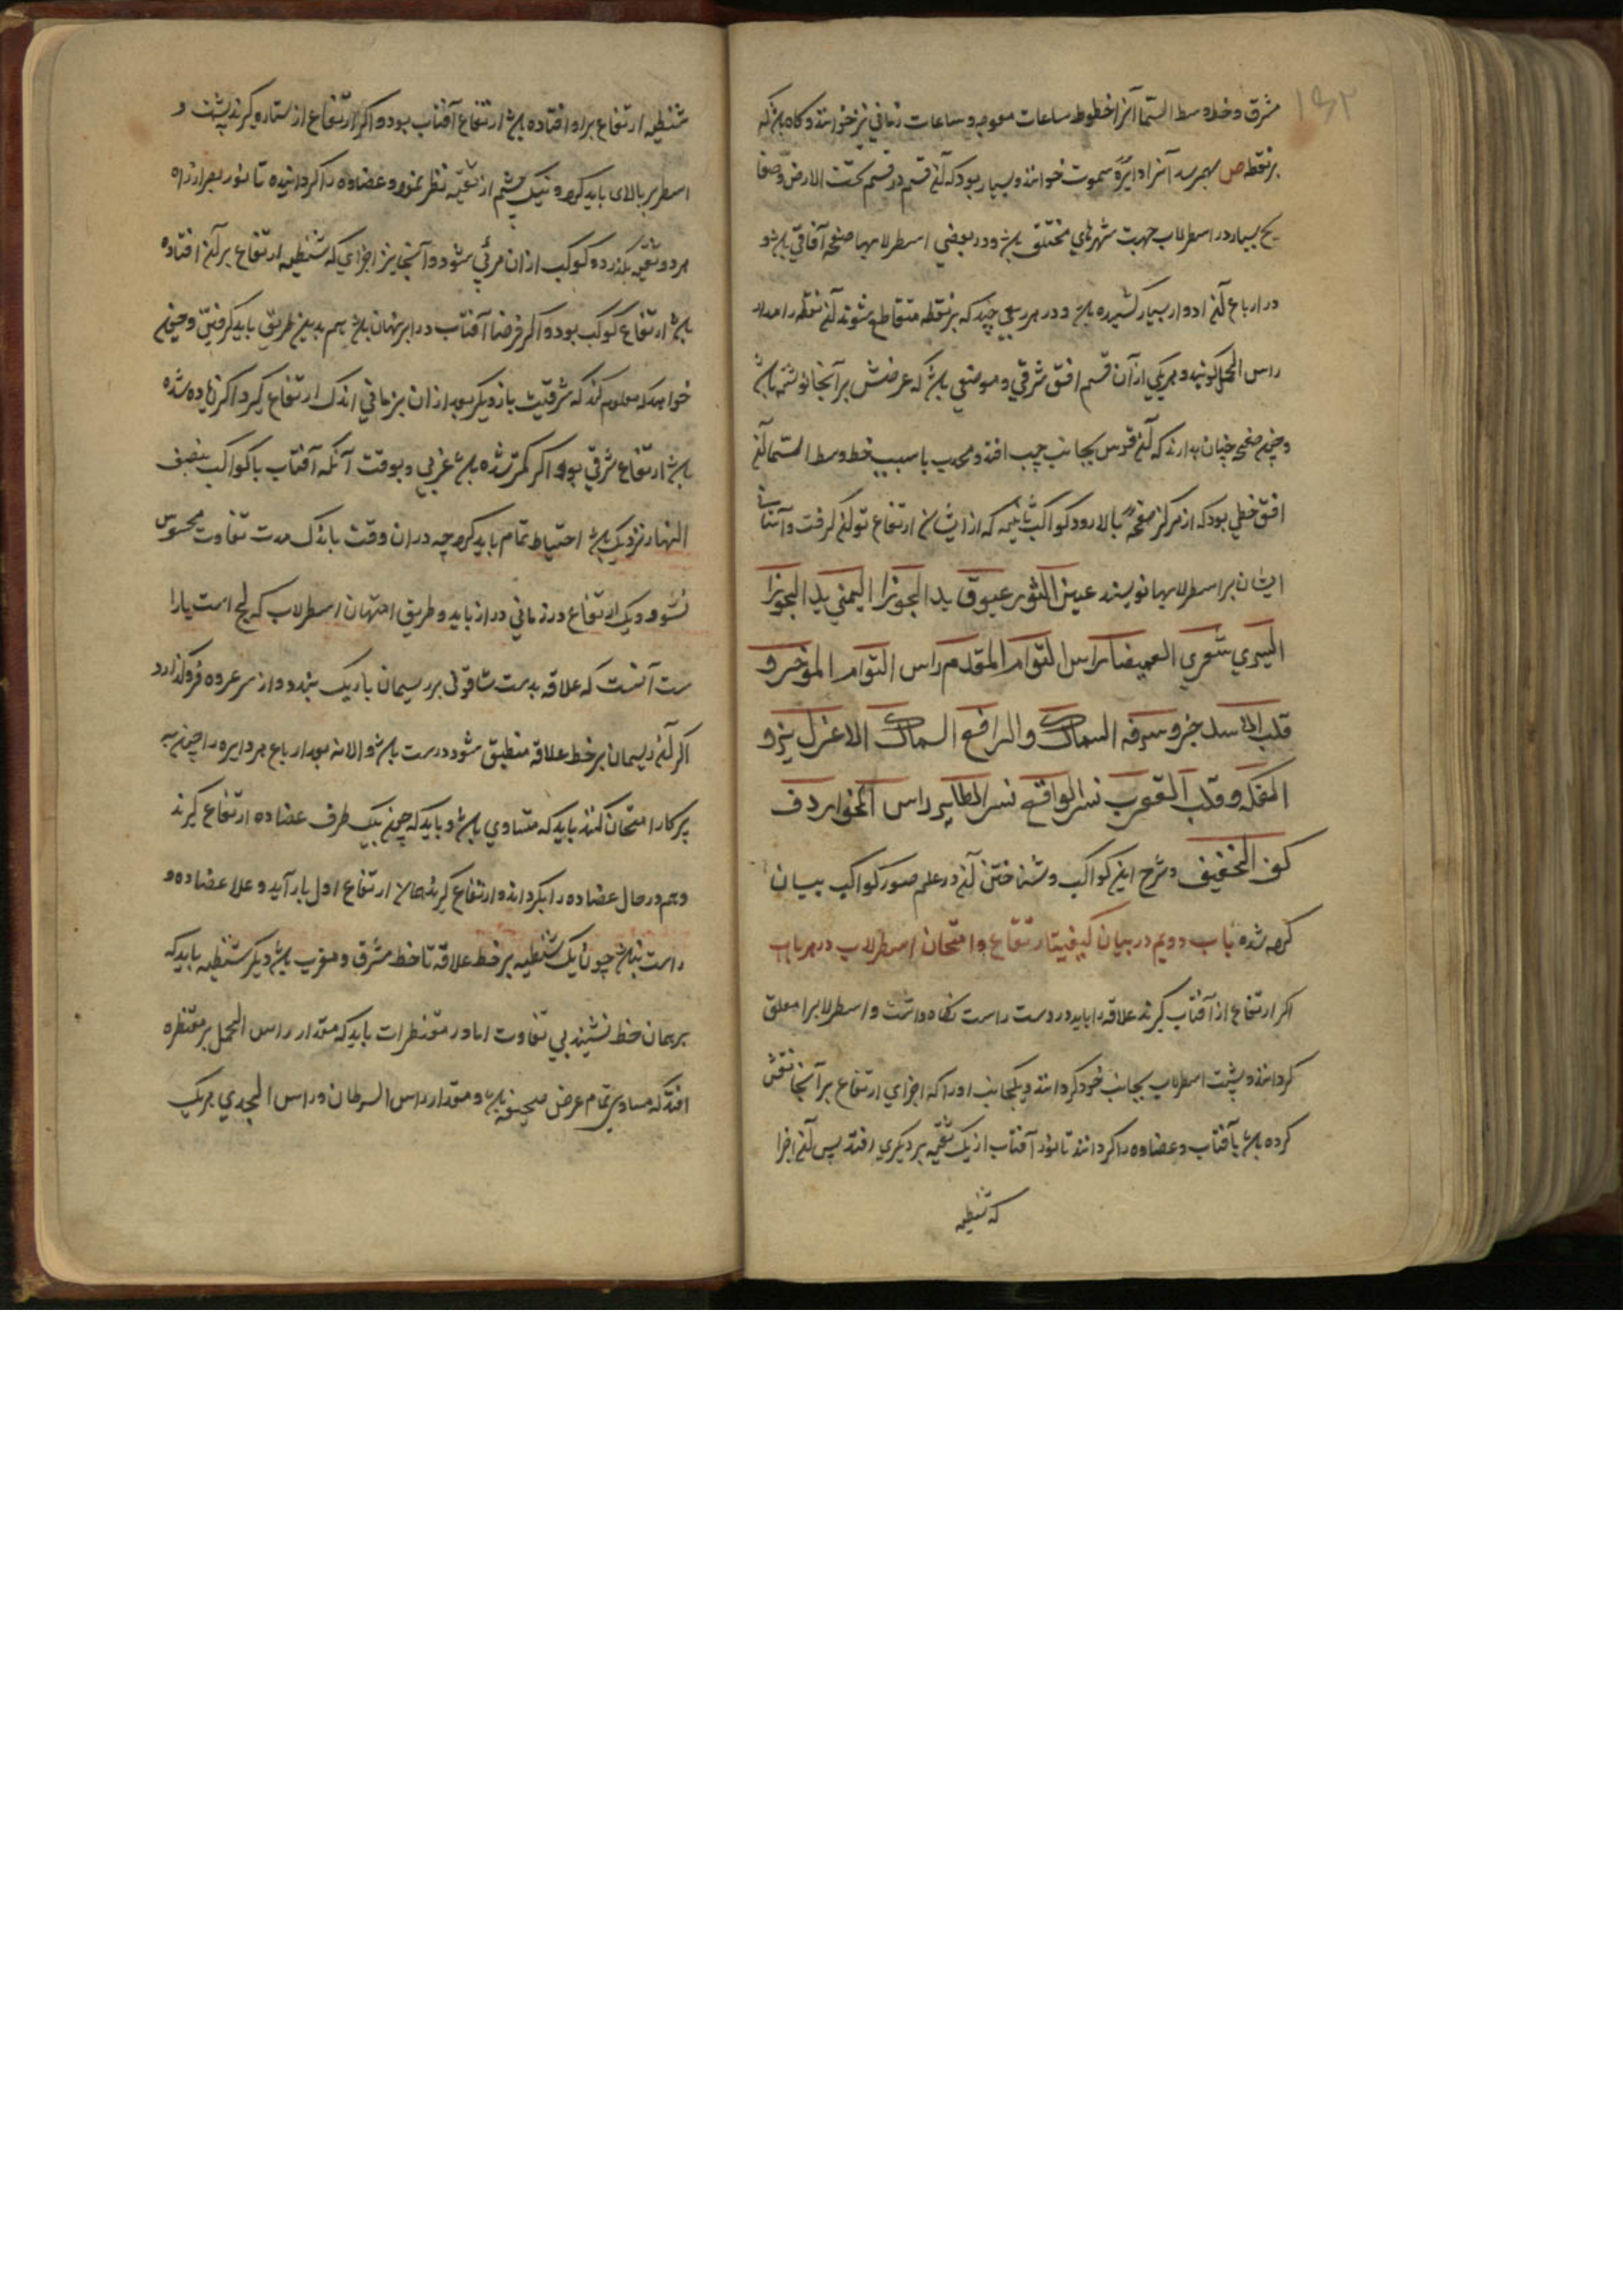 ۱۶۲
مشرق و خط وسط السما آنرا خطوط ساعات معوجه و ساعات زمانی نیز خوانند و گاه باشد که
بر نقطه ص بهم رسد آنرا دایره سموت خوانند و بسیار بود که آن قسم در قسم تحت الارض و صفا
یح بسیار در اسطرلاب جهت شهرهای مختلق باشد و در بعضی اسطرلابها صفحه آفاقی باشد و
در ارباع آن ادوار بسیار کشیده باشد و در هر ربعی چند که بر نقطه متقاطع شوند آن نقطه را مدار
راس الحمل گویند و هر یکی از آن قسم افق شرقی و موضعی باشد که عرضش بر آنجا نوشته باشد
و چون صفحه چنان بدارند که آن قوس بجانب چپ افتد و محدب با سبب خط وسط السما آن
افق خطی بود که از مرکز صفحه بالا رود کواکب ثابته که از ایشان ارتفاع توان گرفت و آنتاب
ایشان بر اسطرلابها نویسند عین الثور عیوق ید الجوزا الیمنی ید الجوزا
الیسری شعری العمیضا راس التوام المقدم راس التوام الموخر و
قلب الاسد جز و سرفه السماک والرافع السماک الاعزل نیر و
المفکه و قلب العقرب نسر الواقع نسر الطایر راس الحوا ردف
کف الخضیف و شرح این کواکب و شناختن آن در علم صور کواکب بیان
کرده شده باب دویم در بیان کیفیت ارتفاع و امتحان اسطرلاب در هر باب
اگر ارتفاع از آفتاب گیرند علاقه را باید در دست راست نگاه داشت و اسطرلاب را معلق
گردانند و پشت اسطرلاب بجانب خود گردانند و یکجانب او را که اجزای ارتفاع بر آنجا نقش
کرده باشد بآفتاب و عضاده را گردانند تا نور آفتاب از یک ثقبه بر دیگری افتد پس آن اجزا
که شظیه
شظیه ارتفاع براو افتاده باشد ارتفاع آفتاب بود و اگر ارتفاع از ستاره گیرند پشت و
اسطر بر بالای باید کرد و نیک چشم از ثقبه نظر نمود و عضاده را گردانیده تا نور بصر از راه
هر دو ثقبه بگذرد و کوکب ازان مرئی شود و آنجا نیز اجزای که شظیه ارتفاع بر آن افتاده
باشد ارتفاع کوکب بود و اگر فرضا آفتاب در ابر پنهان باشد هم بدین طریق باید گرفتن و چون
خواهد که معلوم کند که شرقیت باز دیگر بعد ازان بزمانی اندک ارتفاع گیرد اگر زیاده شده
باشد ارتفاع شرقی بود و اگر کمتر شده باشد غربی و بوقت آنکه آفتاب یا کواکب بنصف
النهار نزدیک باشد احتیاط تمام باید کرد چه دران وقت باندک مدت تفاوت محسوس
نشود و یک ارتفاع در زمانی دراز باید و طریق امتحان اسطرلاب که کج است یا را
ست آنست که علاقه بدست شاقولی بر ریسمان باریک بندد و از سر عروه فروگذارد
اگر آن ریسمان بر خط علاقه منطبق شود درست باشد و الا نه بعد ارباع هر دایره را چون به
پرکار امتحان کنند باید که متساوی باشد و باید که چون بیک طرف عضاده ارتفاع گیرند
و هم در حال عضاده را بگردانند و ارتفاع گیرند همان ارتفاع اول بار آید و علا عضاده و
راست باشد چون یک شظیه بر خط علاقه تا خط مشرق و مغرب باشد دیگر شظیه باید که
بر همان خط نشیند بی تفاوت اما در مقنطرات باید که مقدار راس الحمل بر مقنطره
افتد که مساوی تمام عرض صحیفه باشد و مقدار راس السرطان و راس الجدی هر یک